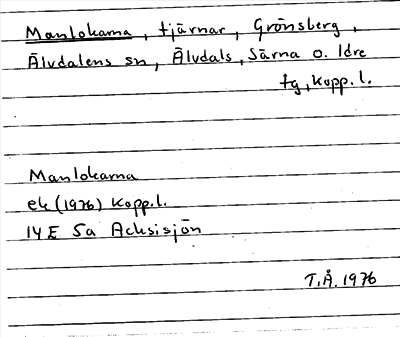 Manlokarna, tjärnar, Grönsberg,
Älvdalens sn, Älvdals, Särna o. Idre
tg, Kopp.l.
Manlokarna
ek (1976) Kopp.l.
14E 5a Acksisjön
T.Å. 1976